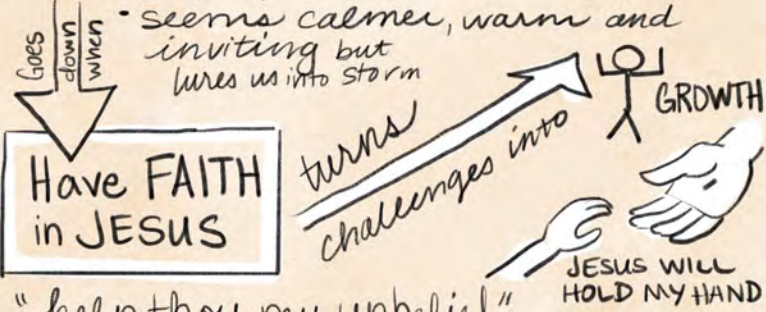 Goes
down
when
• seems calmer, warm and
inviting but
lures us into storm
Have FAITH
in JESUS
turns
challenges into
GROWTH
JESUS WILL
HOLD MY HAND
"help thou my unbelief"